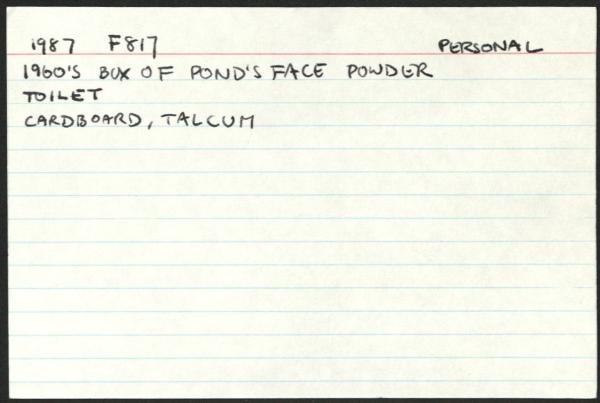 1987 F817 PERSONAL
1960'S BOX OF POND'S FACE POWDER
TOILET
CARDBOARD, TALCUM